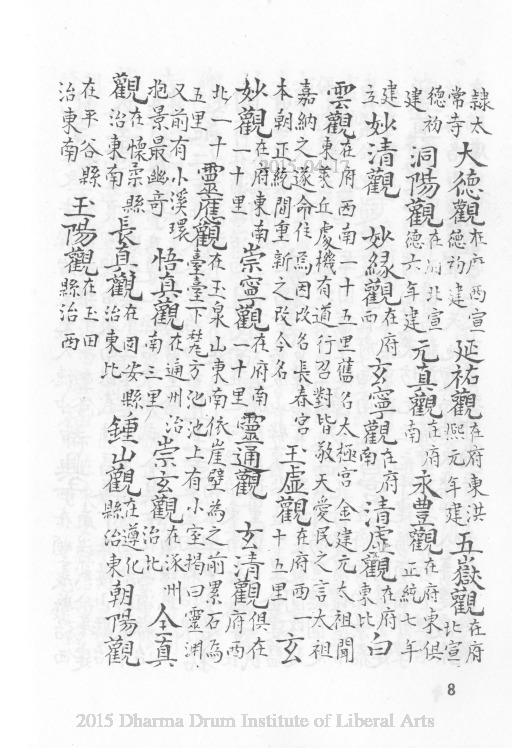 隸太常寺大德觀在府西宣德初建延祐觀在府東洪熙元年建五嶽觀在府北宣
德初建洞陽觀在府北宣德六年建元真觀在府南永豐觀在府東俱正統七年
建立妙清觀 妙緣觀在府西玄寧觀在府南清虛觀在府東北白
雲觀在府西南一十五里舊名太極宮金建元太祖聞東羨丘處機有道行召對皆敬天愛民之言太祖
嘉納之遂命住焉因改名長春宮本朝正統間重新之改今名玉虛觀在府西一十五里玄
妙觀在府東南一十里崇寧觀在府南一十里靈通觀 玄清觀俱在府西
北一十五里靈應觀在玉泉山東南依崖壁為之前累石為臺臺下甃方池池上有小室揭曰靈渊
又前有小溪環抱景最幽奇悟真觀在通州治南三里崇玄觀在涿州治北全真
觀在懷柔縣治東南長真觀在固安縣治東北鍾山觀在遵化縣治東朝陽觀
在平谷縣治東南玉陽觀在玉田縣治西
8
2015 Dharma Drum Institute of Liberal Arts